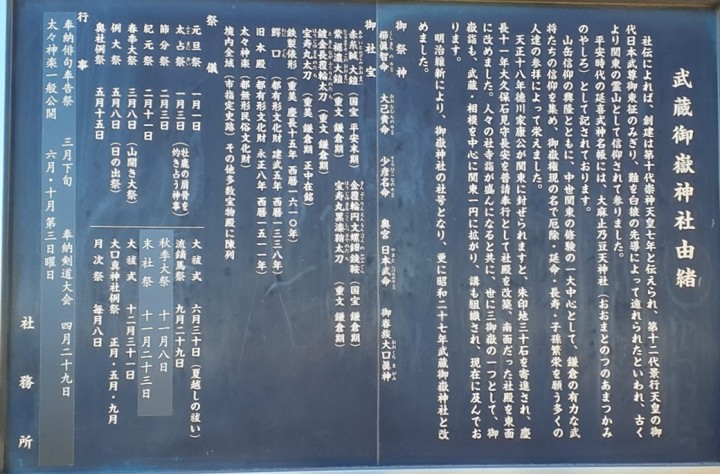 武蔵御嶽神社由緒
社伝によれば、創建は第十代崇神天皇七年と伝えられ、第十二代景行天皇の御
代日本武尊御東征のみぎり、難を白狼の先導によって逃れられたといわれ、古く
より関東の霊山として信仰されて参りました。
平安時代の延喜式神名帳には、大麻止乃豆天神社(おおまとのつのあまつかみ
のやしろ)として記されております。
山岳信仰の興隆とともに、中世関東の修験の一大中心として、鎌倉の有力な武
将たちの信仰を集め、御嶽権現の名で厄除・延命・長寿・子孫繁栄を願う多くの
人達の参拝によって栄えました。
天正十八年徳川家康公が関東に封ぜられますと、朱印地三十石を寄進され、慶
長十一年大久保石見守長安を普請奉行として社殿を改築、南面だった社殿を東面
に改めました。人々の社寺詣が盛んになると共に、世に三御嶽の一つとして、御
嶽詣も、武蔵・相模を中心に関東一円に拡がり、講も組織され、現在に及んでお
ります。
明治維新により、御嶽神社の社号となり、更に昭和二十七年武蔵御嶽神社と改
めました。
御祭神
櫛眞智命 大己貴命 少彦名命 奥宮 日本武命 御眷族大口眞神
御社宝
赤糸威大鎧(国宝 平安末期) 金覆輪円文螺鈿鏡鞍(国宝 鎌倉期)
紫裾濃大鎧(重文 鎌倉期) 宝寿丸黒漆鞘太刀(重文 鎌倉期)
鍍金長覆輪太刀(重文 鎌倉期)
宝寿丸太刀(重美 鎌倉期 正中在銘)
鉄製鋳形(重美 慶長十五年 西暦一六一〇年)
鰐口(都有形文化財 建武五年 西暦一三三八年)
旧本殿(都有形文化財 永正八年 西暦一五一一年)
太々神楽(都無形民俗文化財)
境内全域(市指定史跡) その他多数宝物殿に陳列
祭儀
元旦祭 一月一日 大祓式 六月三十日(夏越しの祓い)
太占祭 一月三日(牡鹿の肩骨を灼き占う神事) 流鏑馬祭 九月二十九日
節分祭 二月三日 秋季大祭 十一月八日
紀元祭 二月十一日 末社祭 十一月二十三日
春季大祭 三月八日(山開き大祭) 大祓式 十二月三十一日
例大祭 五月八日(日の出祭) 大口眞神社例祭 正月・五月・九月
奥社例祭 五月十五日 月次祭 毎月八日
行事
奉納俳句奉告祭 三月下旬 奉納剣道大会 四月二十九日
太々神楽一般公開 六月・十月 第三日曜日
社務所